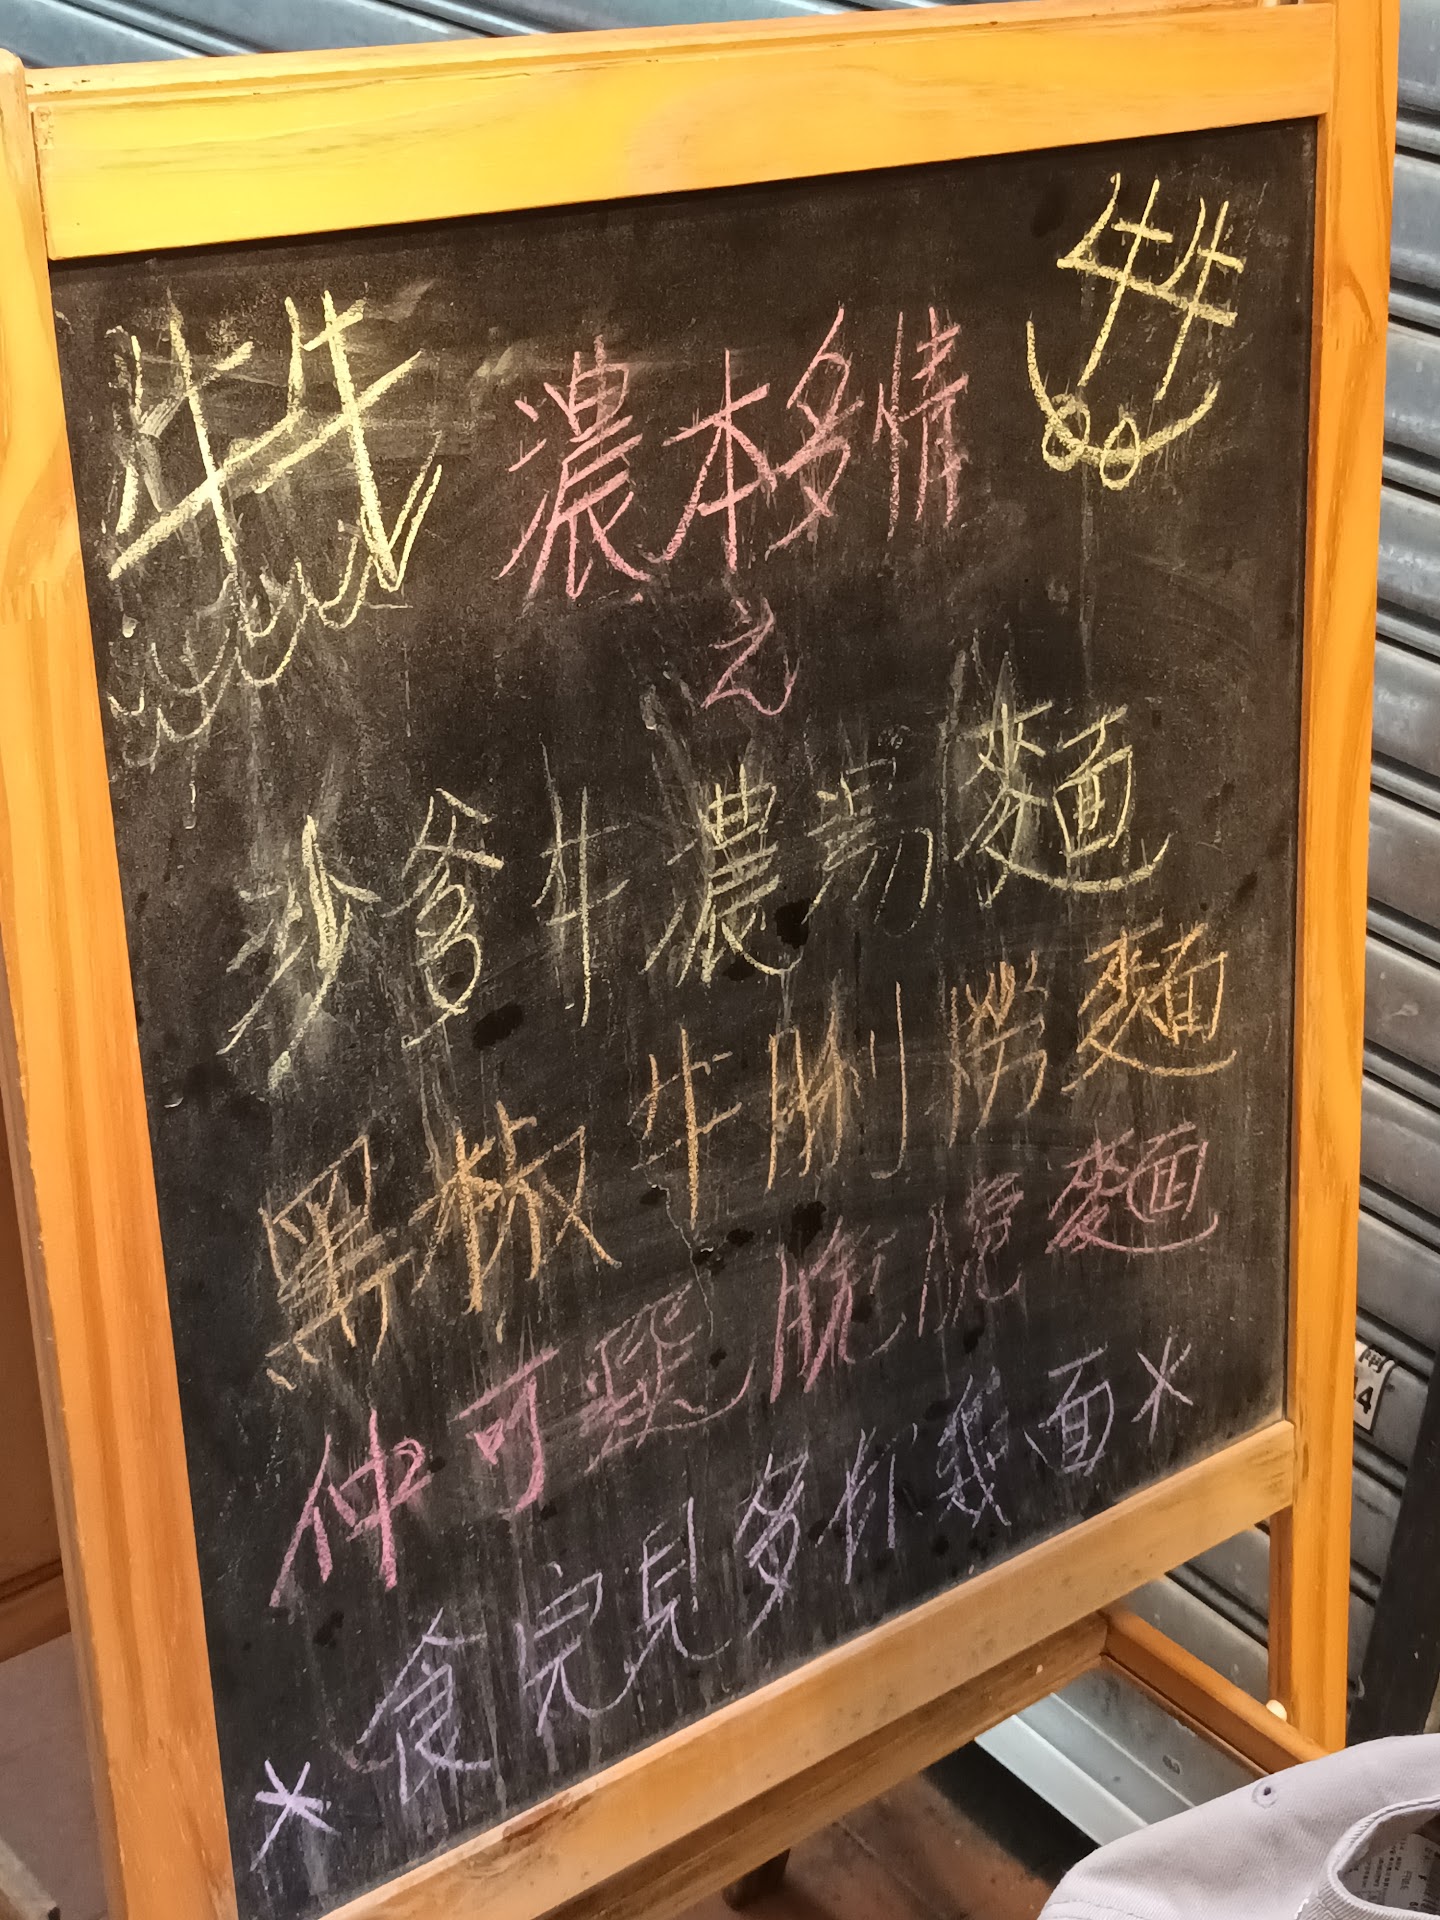 牛牛 濃本多情 牛牛
之
沙爹牛濃湯麵
黑椒牛脷撈麵
仲可選脆麵
*食完見多你幾面*